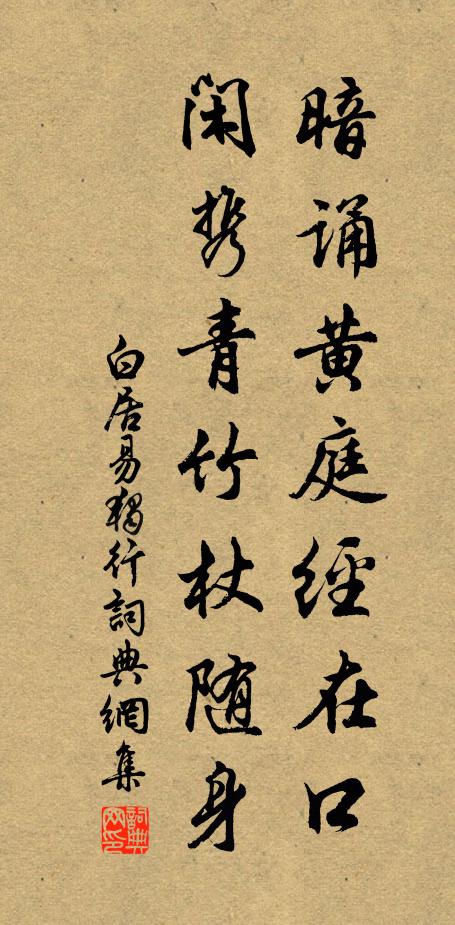 暗誦黄庭經在口
闲携青竹杖随身
白居易獨行詞典網集
詞典網印